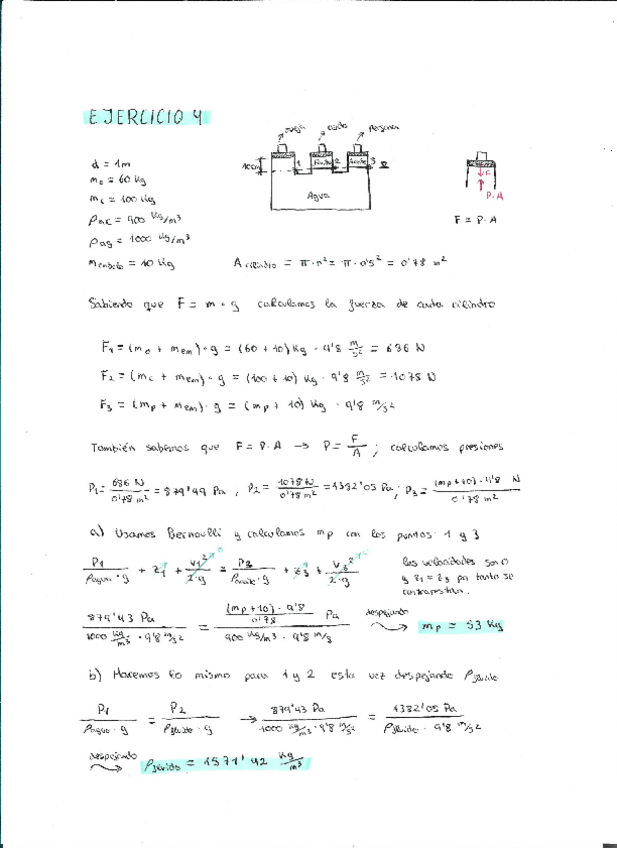 EJERCICIO 4
oveja cerdo persona
d = 1m
10cm 1 Fluido 2 Aceite 3
m₀ = 60 Kg
F
mc = 100 Kg
Agua
P.A
ρac = 900 Kg/m³
F = P.A
ρag = 1000 Kg/m³
membolo = 10 Kg
A cilindro = π·r² = π·0'5² = 0'78 m²
Sabiendo que F = m·g calculamos la fuerza de cada cilindro
F₁ = (m₀ + mem)·g = (60 + 10) Kg · 9'8 m/s² = 686 N
F₂ = (mc + mem)·g = (100 + 10) Kg · 9'8 m/s² = 1078 N
F₃ = (mp + mem)·g = (mp + 10) Kg · 9'8 m/s²
También sabemos que F = P.A → P = F/A ; calculamos presiones
P₁ = 686 N / 0'78 m² = 879'49 Pa , P₂ = 1078 N / 0'78 m² = 1382'05 Pa ; P₃ = (mp+10)·9'8 N / 0'78 m²
a) Usamos Bernoulli y calculamos mp con los puntos 1 y 3
P₁ / ρagua·g + z₁ + v₁² / 2·g = P₃ / ρaceite·g + z₃ + v₃² / 2·g
las velocidades son 0
y z₁ = z₃ por tanto se
contrarrestan.
879'43 Pa / 1000 Kg/m³ · 9'8 m/s² = (mp+10)·9'8 / 0'78 Pa / 900 Kg/m³ · 9'8 m/s
despejando
mp = 53 Kg
b) Hacemos lo mismo para 1 y 2 esta vez despejando ρfluido
P₁ / ρagua·g = P₂ / ρfluido·g → 879'43 Pa / 1000 Kg/m³ · 9'8 m/s² = 1382'05 Pa / ρfluido · 9'8 m/s²
despejando
ρfluido = 1571'42 Kg/m³